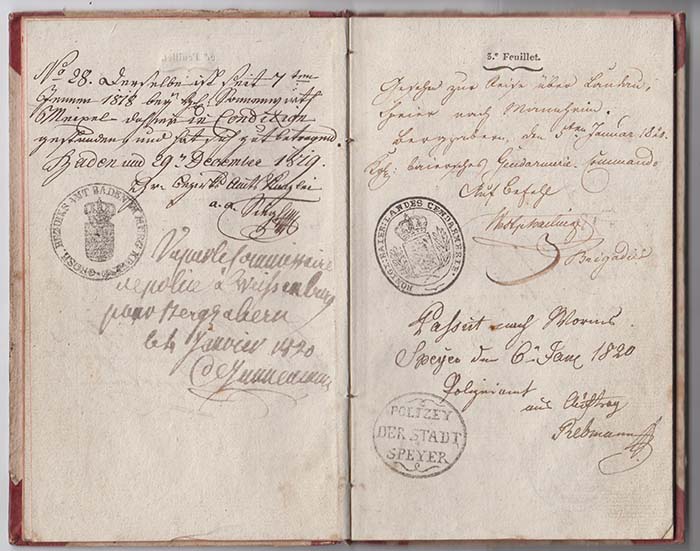 No 28. Derselbe ist seit 7 ten
1818 bey
in Condition
gestanden, und hat sich gut betragend.
Baden am 29n Decembre 1819.
a. a.
GROSH. BEZIRKS AMT BADEN
Vu par le Commissaire
de police à Wissembourg
pour Bergzabern
le 4 Janvier 1820
3.e Feuillet.
Gesehn zur Reise über Landau,
Speier nach Mannheim.
Bergzabern, den 5ten Januar 1820.
Kgl: baierisches Gendarmerie Commando
Auf Befehl
Brigadier
LANDES GENDARMERIE
Passirt nach Worms
Speyer den 6n Janr 1820
Polizeiamt
aus Auftrag
Rebmann
POLIZEY
DER STADT
SPEYER